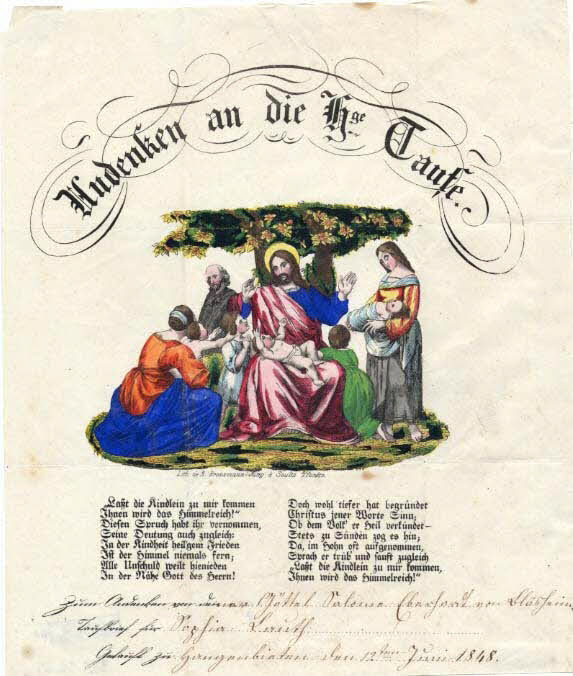 Andenken an die Hge Taufe.
Lith. de
à Soultz
„Laßt die Kindlein zu mir kommen
Ihnen wird das Himmelreich!“
Diesen Spruch habt ihr vernommen,
Seine Deutung auch zugleich:
In der Kindheit heil'gem Frieden
Ist der Himmel niemals fern;
Alle Unschuld weilt hienieden
In der Nähe Gott des Herrn!
Doch wohl tiefer hat begründet
Christus jener Worte Sinn;
Ob dem Volk' er Heil verkündet–
Stets zu Sünden zog es hin;
Da, im Hohn oft aufgenommen,
Sprach er trüb und sanft zugleich
„Laßt die Kindlein zu mir kommen,
Ihnen wird das Himmelreich!“
Zum Andenken von deiner Göttel Salome Eberhardt von Bläsheim,
Taufbrief für Sophia Lauth
Getauft zu Hangenbieten den 12ten Juni 1848.